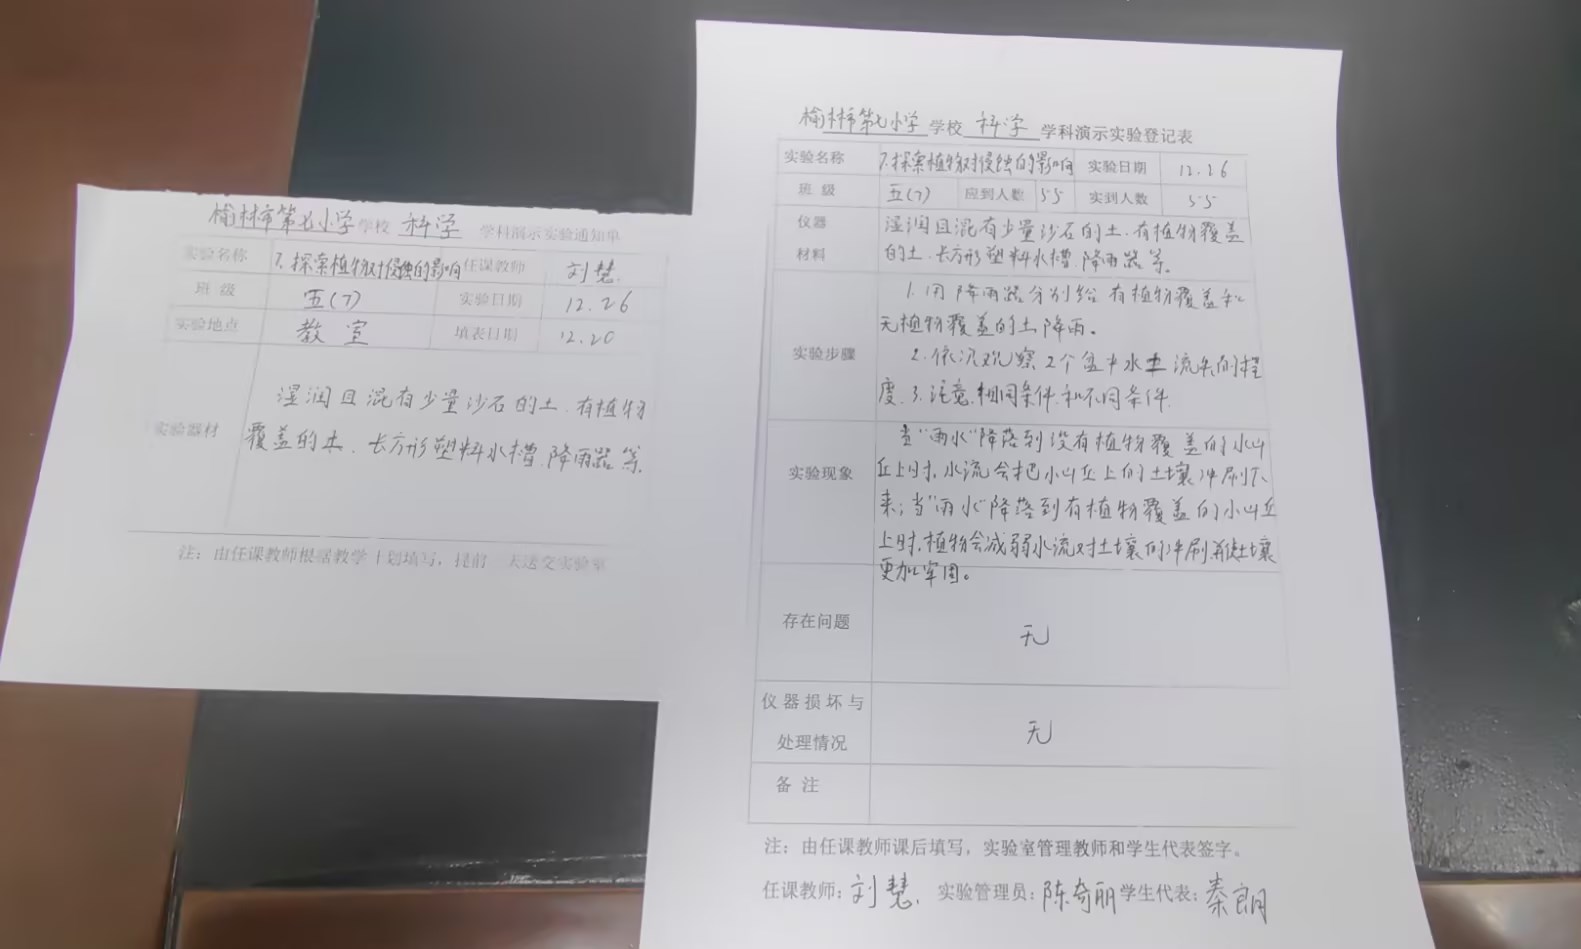 榆林市第七小学 学校 科学 学科演示实验通知单
实验名称 7.探索植物对侵蚀的影响 任课教师 刘慧
班 级 五(7) 实验日期 12.26
实验地点 教室 填表日期 12.20
实验器材
湿润且混有少量沙石的土、有植物
覆盖的土、长方形塑料水槽、降雨器等
注：由任课教师根据教学计划填写，提前一天送交实验室
榆林市第七小学 学校 科学 学科演示实验登记表
实验名称 7.探索植物对侵蚀的影响 实验日期 12.26
班 级 五(7) 应到人数 55 实到人数 55
仪器
材料
湿润且混有少量沙石的土、有植物覆盖
的土、长方形塑料水槽、降雨器等。
实验步骤
1.用降雨器分别给有植物覆盖和
无植物覆盖的土降雨。
2.依次观察2个盒中水土流失的程
度.3.注意相同条件和不同条件.
实验现象
当"雨水"降落到没有植物覆盖的小山
丘上时,水流会把小山丘上的土壤冲刷下
来;当"雨水"降落到有植物覆盖的小山丘
上时,植物会减弱水流对土壤的冲刷,并使土壤
更加牢固。
存在问题 无
仪器损坏与
处理情况
无
备 注
注：由任课教师课后填写，实验室管理教师和学生代表签字。
任课教师：刘慧. 实验管理员：陈奇丽 学生代表：秦朗